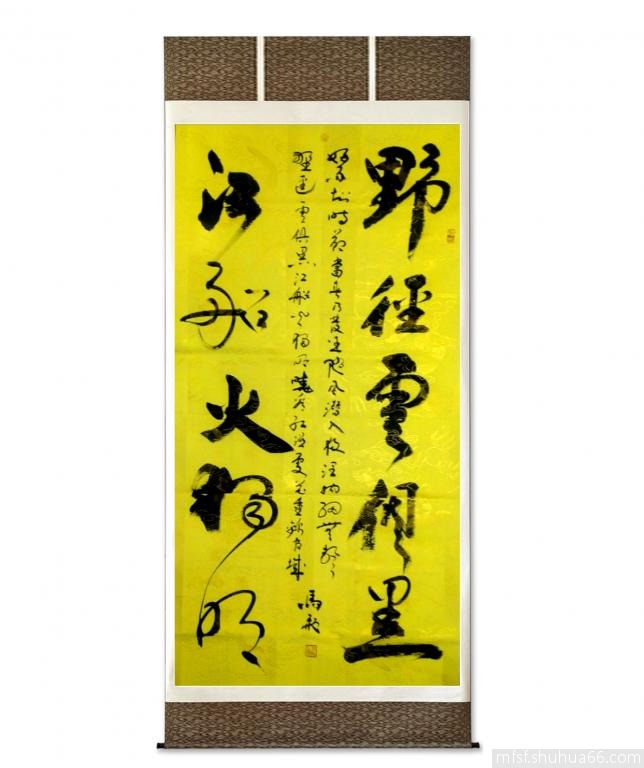 野徑雲俱黑
好雨知時節當春乃發生隨風潛入夜潤物細無聲
野徑雲俱黑江船火獨明曉看紅濕處花重錦官城
江船火獨明
mfsf.shuhua66.com